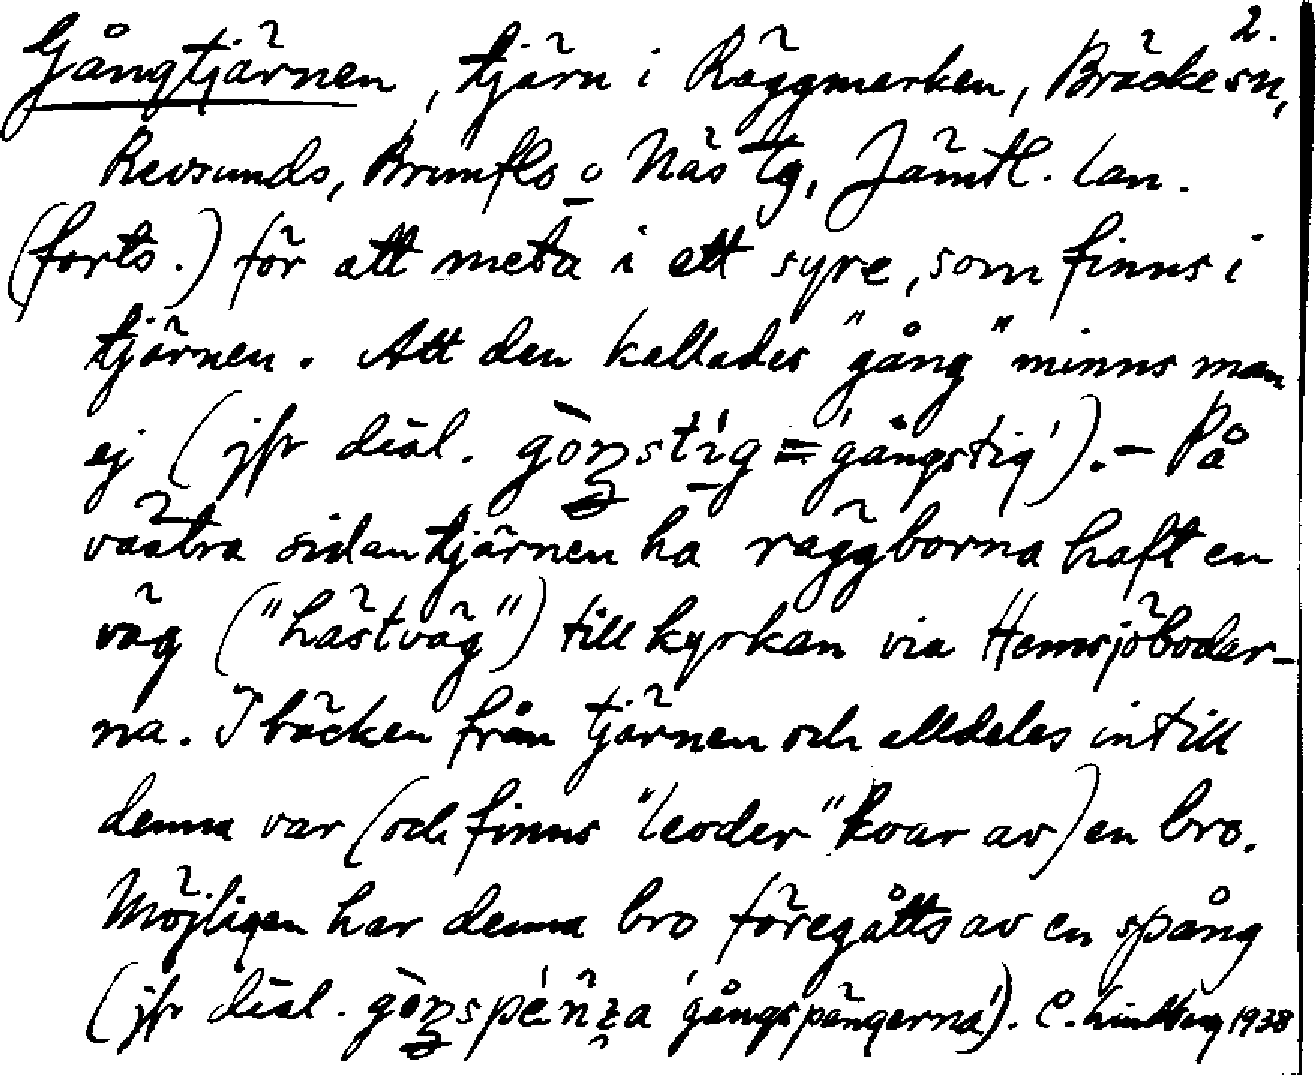 2.
Gångtjärnen, tjärn i Räggmarken, Bräcke sn,
Revsunds, Brunflo o Näs tg, Jämtl. län.
(forts.) för att meta i ett syre, som finns i
tjärnen. Att den kallades "gång" minns man
ej (jfr dial. gòŋstíg = 'gångstig'). - På
västra sidan tjärnen ha räggborna haft en
väg ("hästväg") till kyrkan via Hemsjöboder-
na. I bäcken från tjärnen och alldeles intill
denna var (och finns "leoder" kvar av) en bro.
Möjligen har denna bro föregåtts av en spång
(jfr dial. gòŋspéńŋa 'gångspängerna'). C. Lindberg 1938